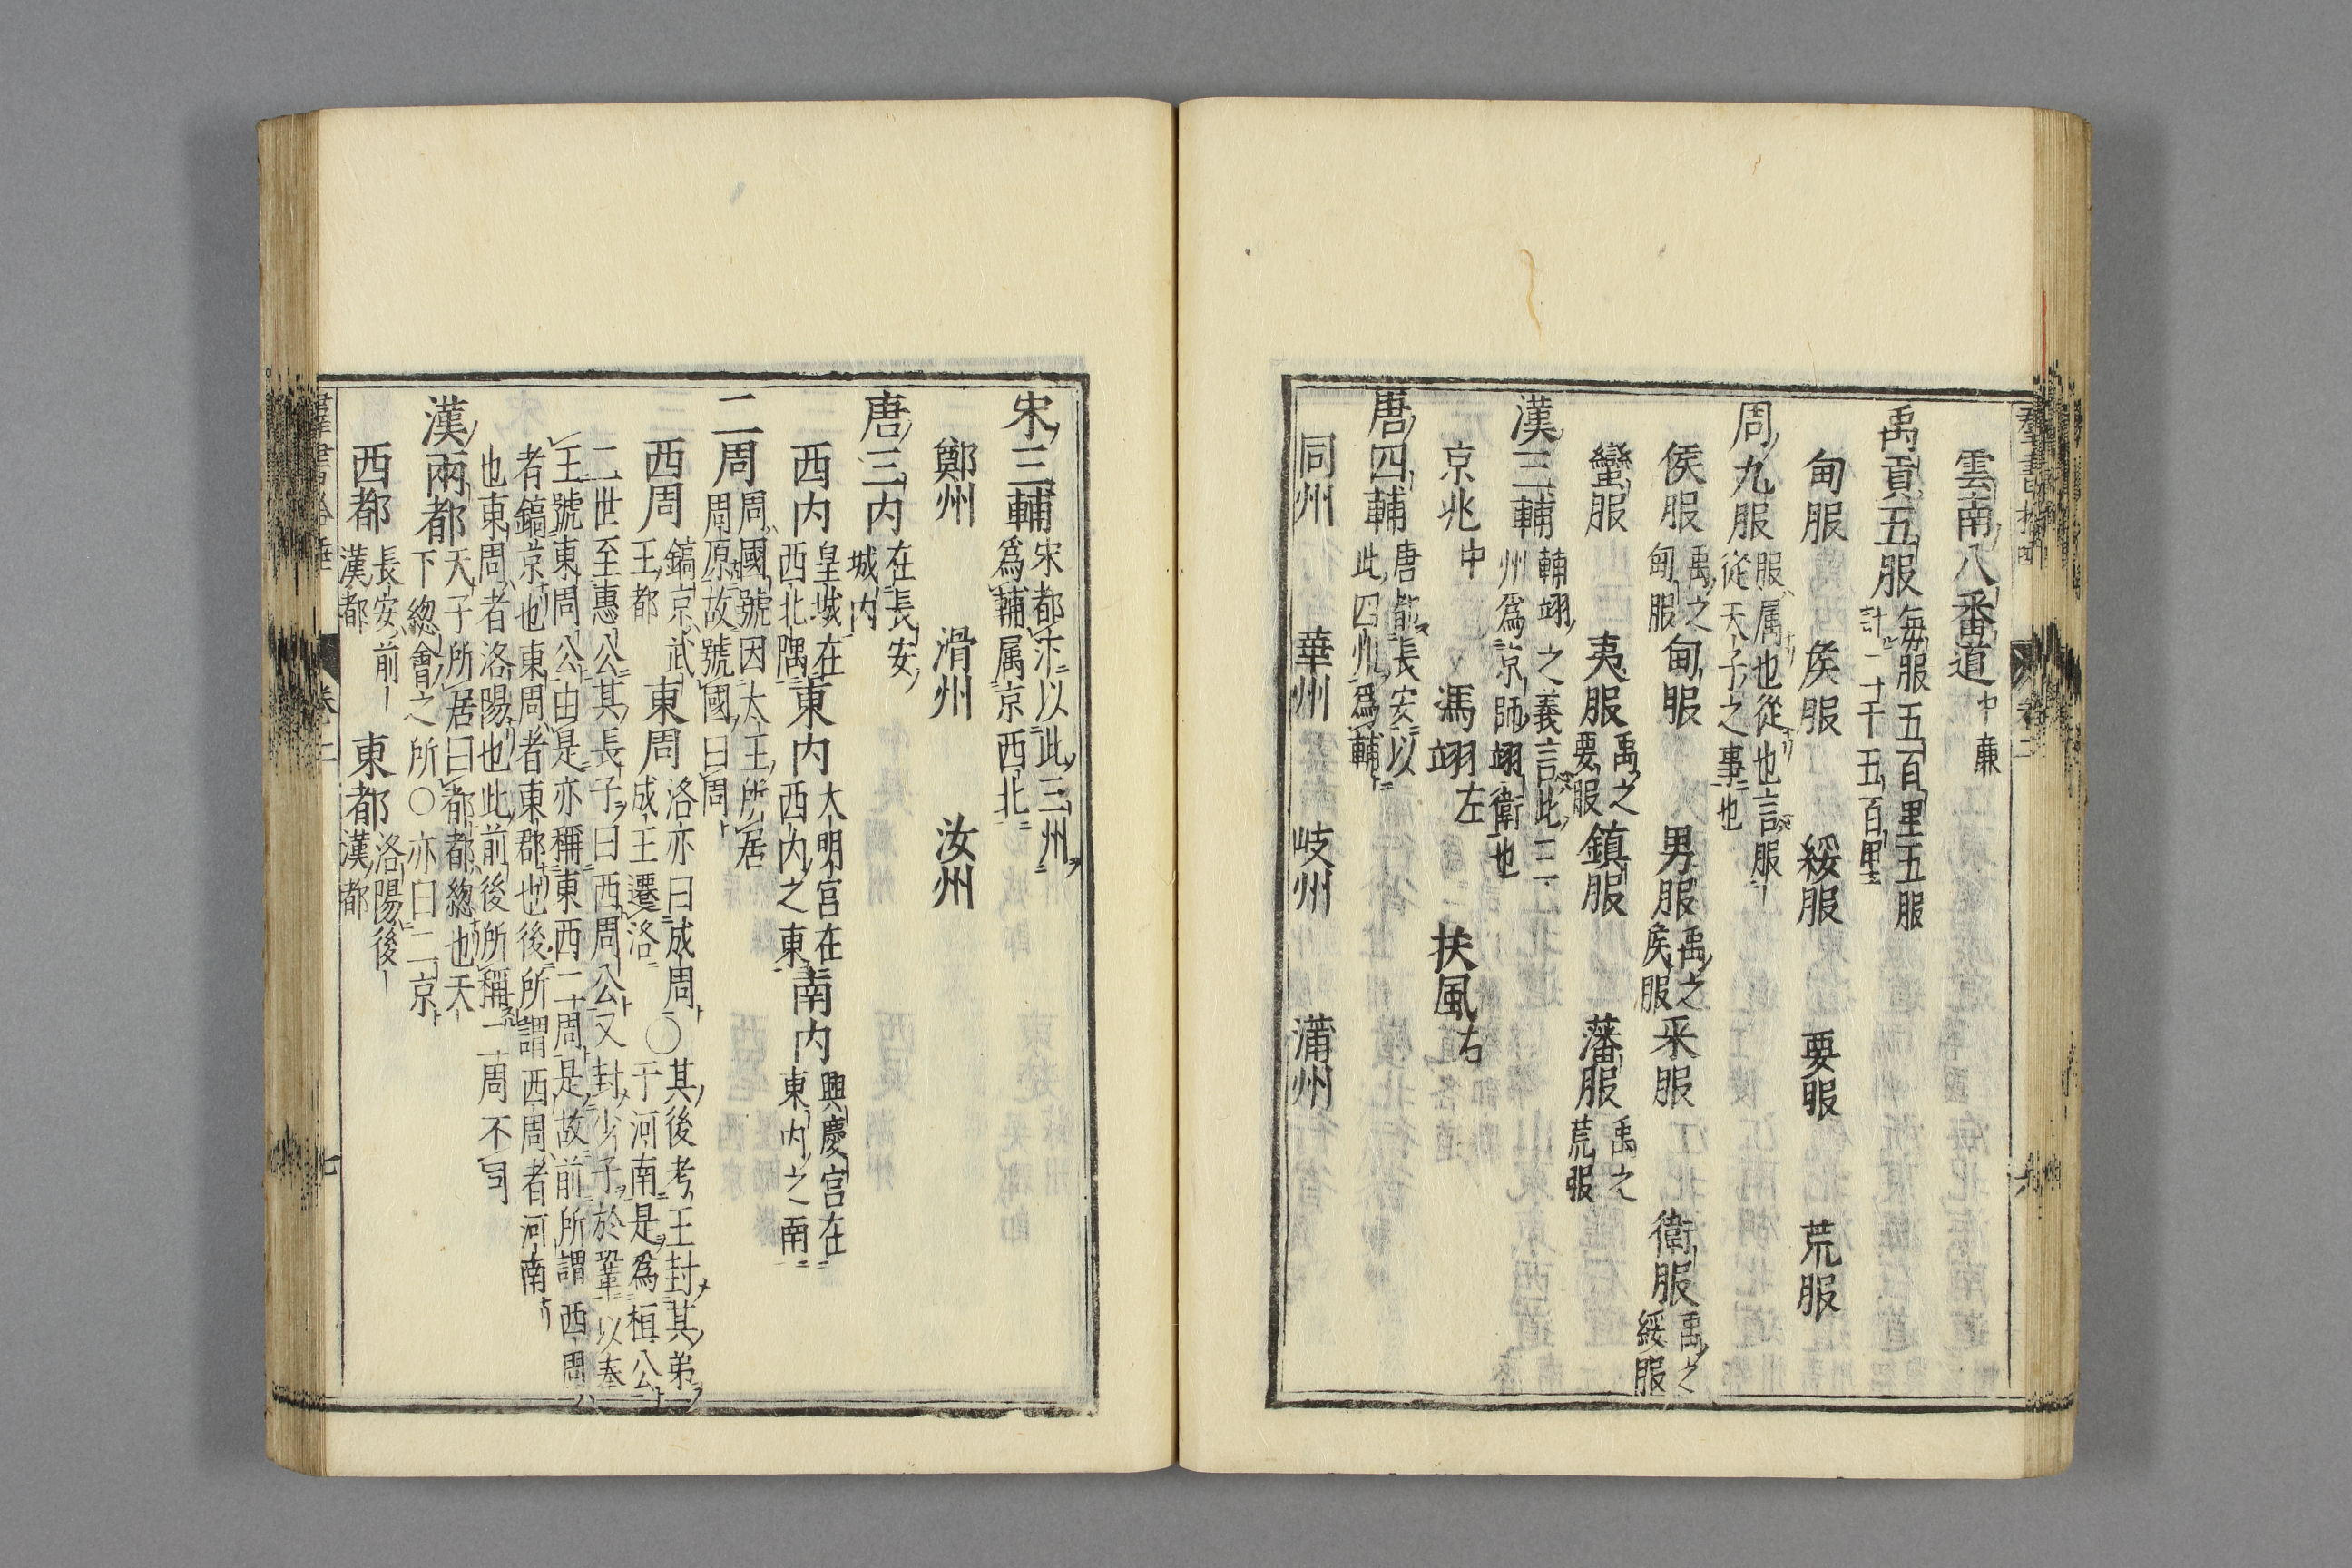 雲南八番道 中廉
禹貢五服 每服五百里五服計二千五百里
甸服 矦服 綏服 要服 荒服
周九服 服属也從也言服從天子之事也
侯服 禹之甸服 甸服 男服 禹之矦服 采服 衛服 禹之綏服
蠻服 夷服 禹之要服 鎮服 藩服 禹之荒服
漢三輔 輔翊之義言此三州爲京師翊衛也
京兆 中 馮翊 左 扶風 右
唐四輔 唐都長安以此四州爲輔
同州 華州 岐州 蒲州
宋三輔 宋都汴以此三州爲輔属京西北
鄭州 滑州 汝州
唐三内 在長安城内
西内 皇城在西北隅 東内 大明宮在西内之東 南内 興慶宮在東内之南
二周 周國號因大王所居周原故號國曰周
西周 鎬京武王都 東周 洛亦曰成周成王遷洛 〇 其後考王封其弟于河南是爲桓公
二世至惠公其長子曰西周公又封少子於鞏以奉
王號東周公由是亦稱東西二周是故前所謂西周
者鎬京也東周者東郡也後所謂西周者河南
也東周者洛陽也此前後所稱二周不同
漢兩都 天子所居曰都都總也天下總會之所〇亦曰二京
西都 長安前漢都 東都 洛陽後漢都
卷二 七